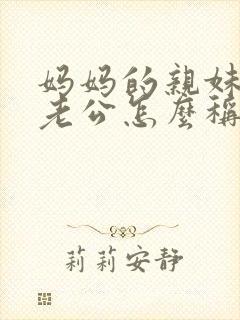 妈妈的親妹
老公怎麼稱
莉莉安静